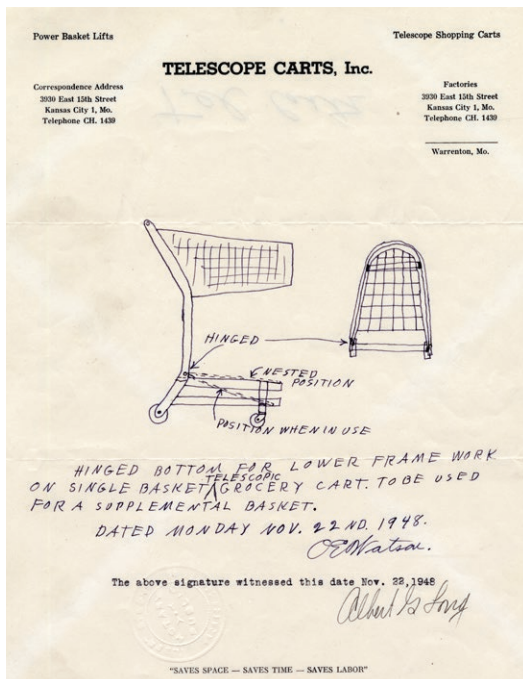 Power Basket Lifts
Telescope Shopping Carts
TELESCOPE CARTS, Inc.
Correspondence Address
3930 East 15th Street
Kansas City 1, Mo.
Telephone CH. 1439
Factories
3930 East 15th Street
Kansas City 1, Mo.
Telephone CH. 1439
Warrenton, Mo.
HINGED
NESTED
POSITION
POSITION WHEN IN USE
HINGED BOTTOM FOR LOWER FRAME WORK
TELESCOPIC
ON SINGLE BASKET GROCERY CART. TO BE USED
FOR A SUPPLEMENTAL BASKET.
DATED MONDAY NOV. 22 ND. 1948.
OEWatson.
The above signature witnessed this date Nov. 22,1948
Albert G Long
"SAVES SPACE — SAVES TIME — SAVES LABOR"